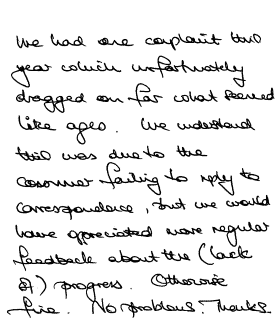 We had one complaint this
year which unfortunately
dragged on for what seemed
like ages. We understand
this was due to the
consumer failing to reply to
correspondence, but we would
have appreciated more regular
feedback about the (lack
of) progress. Otherwise
fine. No problems. Thanks.